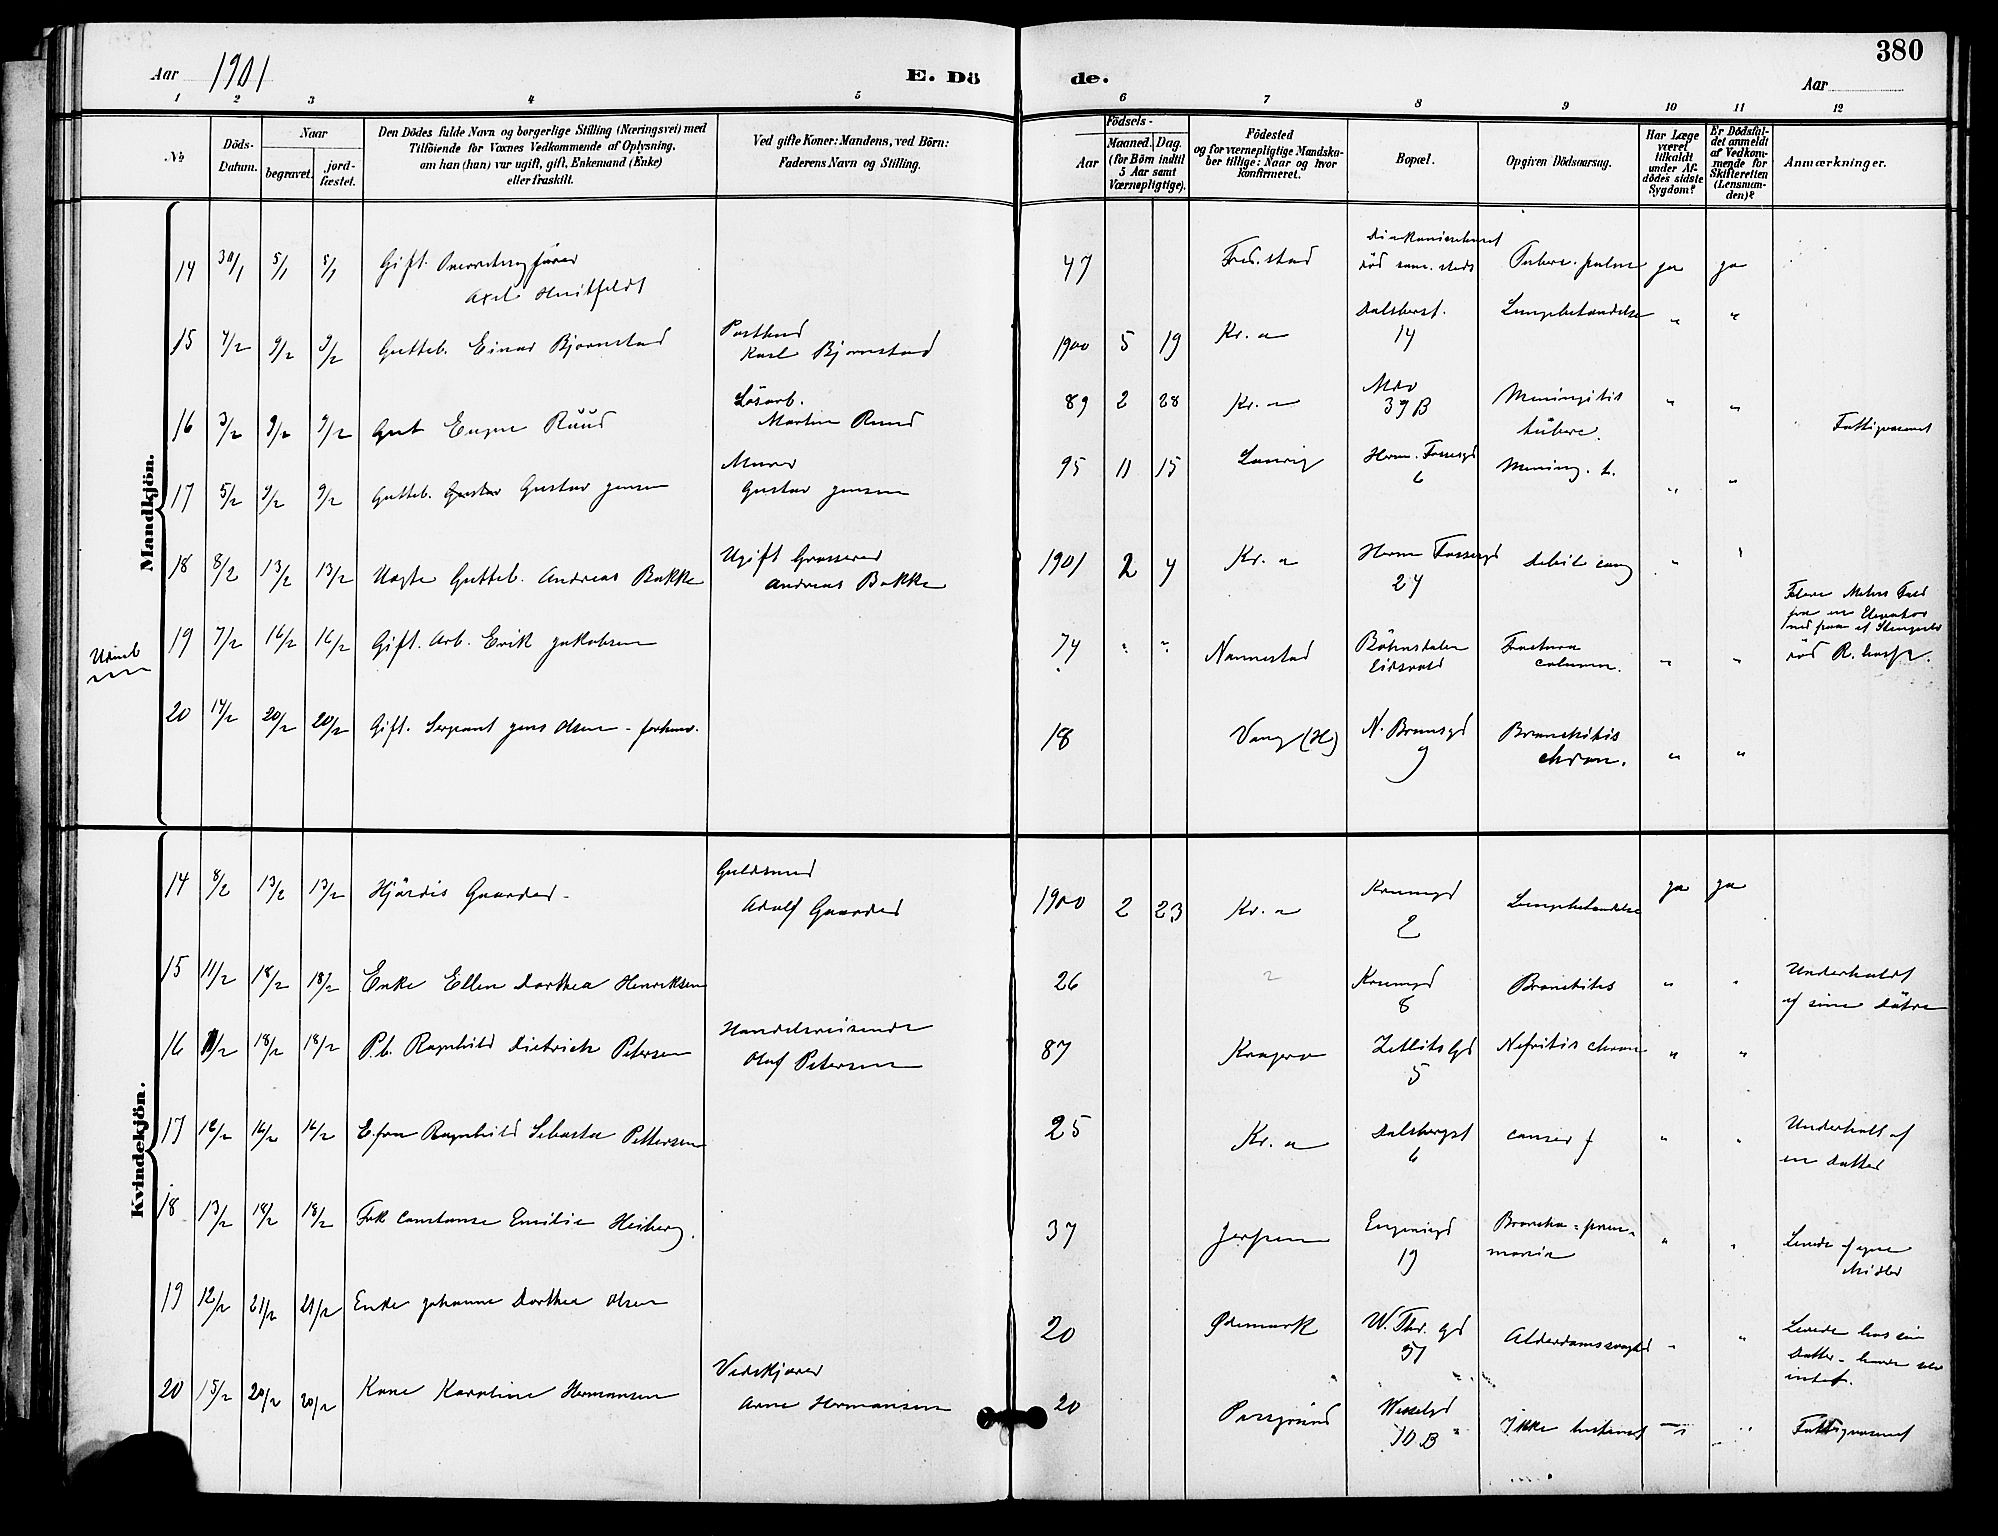 380
Aar 1901
E. Dö
de.
Aar
1 2 3 4 5 6 7 8 9 10 11 12
№
Döds-
Datum.
Naar
begravet.
jord-
fæstet.
Den Dödes fulde Navn og borgerlige Stilling (Næringsvei) med
Tilföiende for Voxnes Vedkommende af Oplysning,
om han (hun) var ugift, gift, Enkemand (Enke)
eller fraskilt.
Ved gifte Koner: Mandens, ved Börn:
Faderens Navn og Stilling.
Födsels-
Aar
Maaned. Dag.
(for Börn indtil
5 Aar samt
Værnepligtige).
Födested
og for værnepligtige Mandska-
ber tillige: Naar og hvor
konfirmeret.
Bopæl.
Opgiven Dödsaarsag.
Har Læge
været
tilkaldt
under Af-
dödes sidste
Sygdom?
Er Dödsfal-
det anmeldt
af Vedkom-
mende for
Skifteretten
(Lensman-
den)?
Anmærkninger.
Mandkjön.
14 30/1 5/1 5/1 Gift.
Axel Huitfeldt
47 Fred.stad ja ja
15 7/2 9/2 9/2 Gutteb. Einar Bjørnstad
Karl Bjørnstad
1900 5 19 Kr.a Dalsbergst.
14
Lungebetændelse " "
16 3/2 9/2 9/2 Gut Ruud
Løsarb.
Martin Ruud
89 2 28 Kr.a
39 B
Meningitis
tuberc.
" " Fattigvæsenet
17 5/2 9/2 9/2 Gutteb. Gustav Jensen
Murer
Gustav Jensen
95 11 15 Laurvig Herm. Fossesgd
6
Mening. t. " "
18 8/2 13/2 13/2 Uægte Gutteb. Andreas Bakke
Ugift Grosserer
Andreas Bakke
1901 2 4 Kr.a Herm Fossesgd
24
Debil. cong " "
19 7/2 16/2 16/2 Gift. Arb. Erik Jakobsen
74 " " Nannestad Bøhnsdalen
Eidsvold
Fractura
column.
" "
ved R. hosp.
20 14/2 20/2 20/2 Gift. Sergeant Jens Olsen - forhenv.
18 Vang (H) N. Brunsgd
9
Bronchitis
chron.
" "
Kvindekjön.
14 8/2 13/2 13/2 Hjørdis Gaarder
Guldsmed
Adolf Gaarder
1900 2 23 Kr.a
2
Lungebetændelse ja ja
15 11/2 18/2 18/2 Enke Ellen Dorthea Henriksen
26
8
Bronchitis " " Underholdt
af sine Døtre
16 18/2 18/2 P.b. Ragnhild Dietrich Petersen
Handelsreisende
Oluf Petersen
87 Kragerø Zetlitz gd
5
Nefritis chron " "
17 12/2 16/2 16/2 E.fru Ragnhild Pettersen
25 Kr.a Dalsbergst
6
" " Underholdt af
en Datter
18 13/2 18/2 18/2 Frk Constanse Emilie Heiberg.
37 Eugeniegd
19
Broncho-pneu-
monia
" " Levede af egne
Midler
19 12/2 21/2 21/2 Enke Johanne Dorthea Olsen
20 Ødemark W. Thr. gd
51
Alderdomssvaghed " " Levede hos sin
Datter
intet.
20 15/2 20/2 20/2 Kone Karoline Hermansen
Vedskjærer
Arne Hermansen
20 Porsgrund Wesselsgd
10 B
Ikke bestemt
Fattigvæsenet